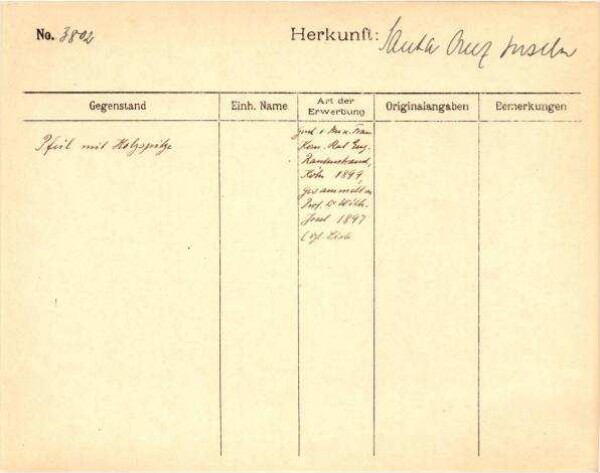 No. 3802
Herkunft: Santa Cruz Inseln
Gegenstand
Einh. Name
Art der
Erwerbung
Originalangaben
Bemerkungen
Pfeil mit Holzspitze
Gesch. v. Frau
Kom. Rat Eug.
Rautenstrauch,
Köln 1899,
gesammelt v.
Prof. Dr Wilh.
Joest 1897
(vgl. Liste